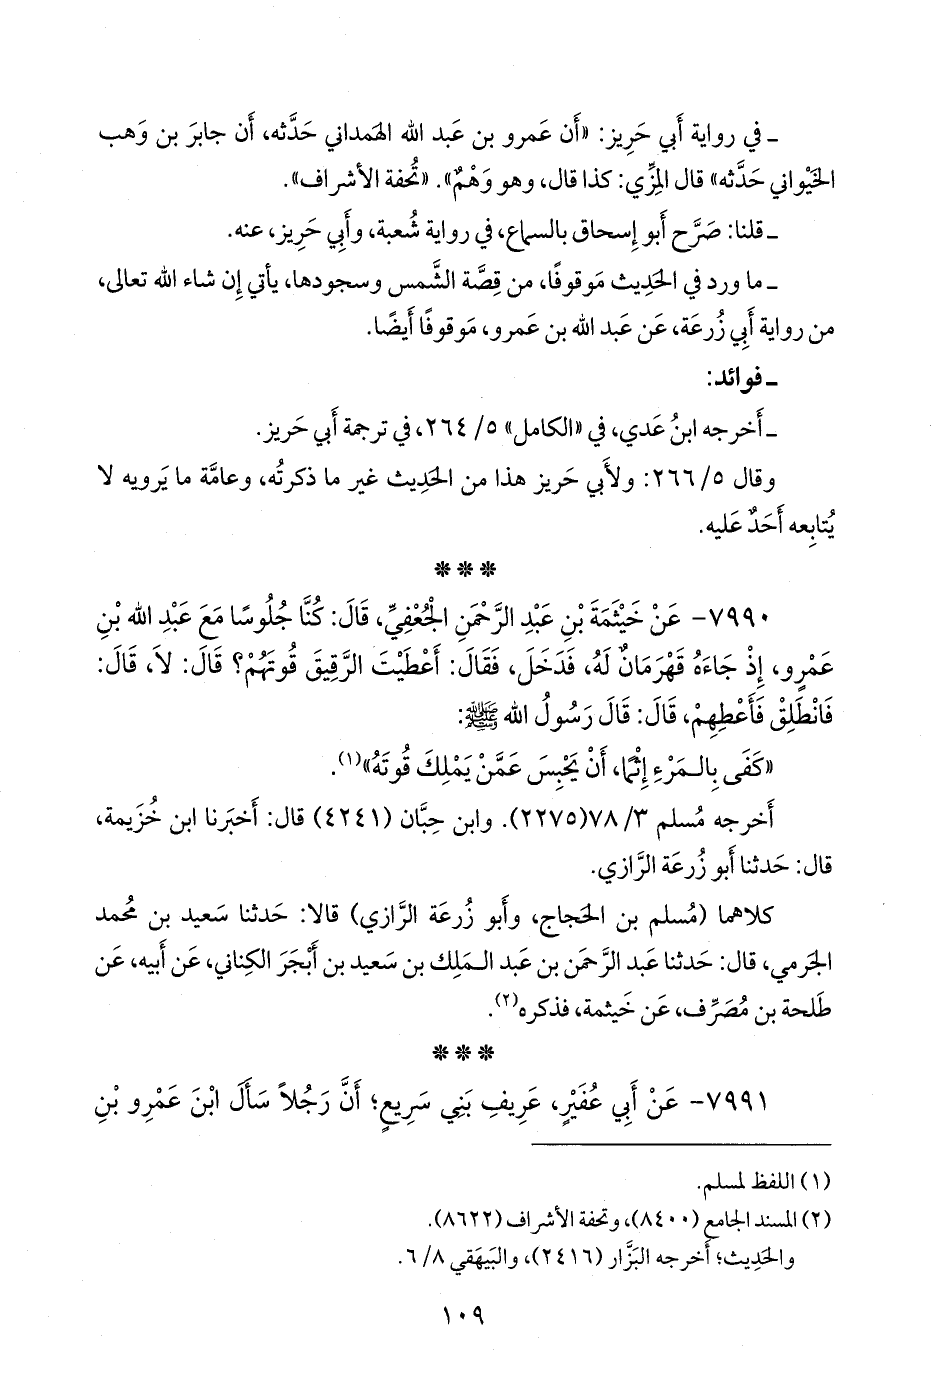 ـ في رواية أَبي حَرِيز: «أَن عَمرو بن عَبد الله الهَمداني حَدَّثه، أَن جابرَ بن وَهب
الخَيْواني حَدَّثه» قال المِزِّي: كذا قال، وهو وَهْمٌ». «تُحفة الأَشراف».
ـ قلنا: صَرَّح أَبو إِسحاق بالسماع، في رواية شُعبة، وأَبي حَرِيز، عنه.
ـ ما ورد في الحَدِيث مَوقوفًا، من قِصَّة الشَّمس وسجودها، يأتي إِن شاء الله تعالى،
من رواية أَبي زُرعَة، عَن عَبد الله بن عَمرو، مَوقوفًا أَيضًا.
ـ فوائد:
ـ أَخرجه ابنُ عَدي، في «الكامل» ٥/ ٢٦٤، في ترجمة أَبي حَريز.
وقال ٥/ ٢٦٦: ولأَبي حَريز هذا من الحَدِيث غير ما ذكرتُه، وعامَّة ما يَرويه لا
يُتابِعه أَحَدٌ عَليه.
***
٧٩٩٠- عَنْ خَيْثَمَةَ بْنِ عَبْدِ الرَّحْمَنِ الْجُعْفِيِّ، قَالَ: كُنَّا جُلُوسًا مَعَ عَبْدِ الله بْنِ
عَمْرٍو، إِذْ جَاءَهُ قَهْرَمَانٌ لَهُ، فَدَخَلَ، فَقَالَ: أَعْطَيْتَ الرَّقِيقَ قُوتَهُمْ؟ قَالَ: لاَ، قَالَ:
فَانْطَلِقْ فَأَعْطِهِمْ، قَالَ: قَالَ رَسُولُ الله ﷺ:
«كَفَى بِالـمَرْءِ إِثْمًا، أَنْ يَحْبِسَ عَمَّنْ يَمْلِكَ قُوتَهُ»(١).
أَخرجه مُسلم ٣/ ٧٨(٢٢٧٥). وابن حِبَّان (٤٢٤١) قال: أَخبَرنا ابن خُزَيمة،
قال: حَدثنا أَبو زُرعَة الرَّازي.
كلاهما (مُسلم بن الحَجاج، وأَبو زُرعَة الرَّازي) قالا: حَدثنا سَعيد بن مُحمد
الجَرمي، قال: حَدثنا عَبد الرَّحمَن بن عَبد الـمَلِك بن سَعيد بن أَبْجَرَ الكِناني، عَن أَبيه، عَن
طَلحة بن مُصَرِّف، عَن خَيثمة، فذكره(٢).
***
٧٩٩١- عَنْ أَبِي عُفَيْرٍ، عَرِيفِ بَنِي سَرِيعٍ؛ أَنَّ رَجُلاً سَأَلَ ابْنَ عَمْرِو بْنِ
(١) اللفظ لمسلم.
(٢) المسند الجامع (٨٤٠٠)، وتحفة الأشراف (٨٦٢٢).
والحَدِيث؛ أَخرجه البَزَّار (٢٤١٦)، والبَيهَقي ٨/ ٦.
١٠٩